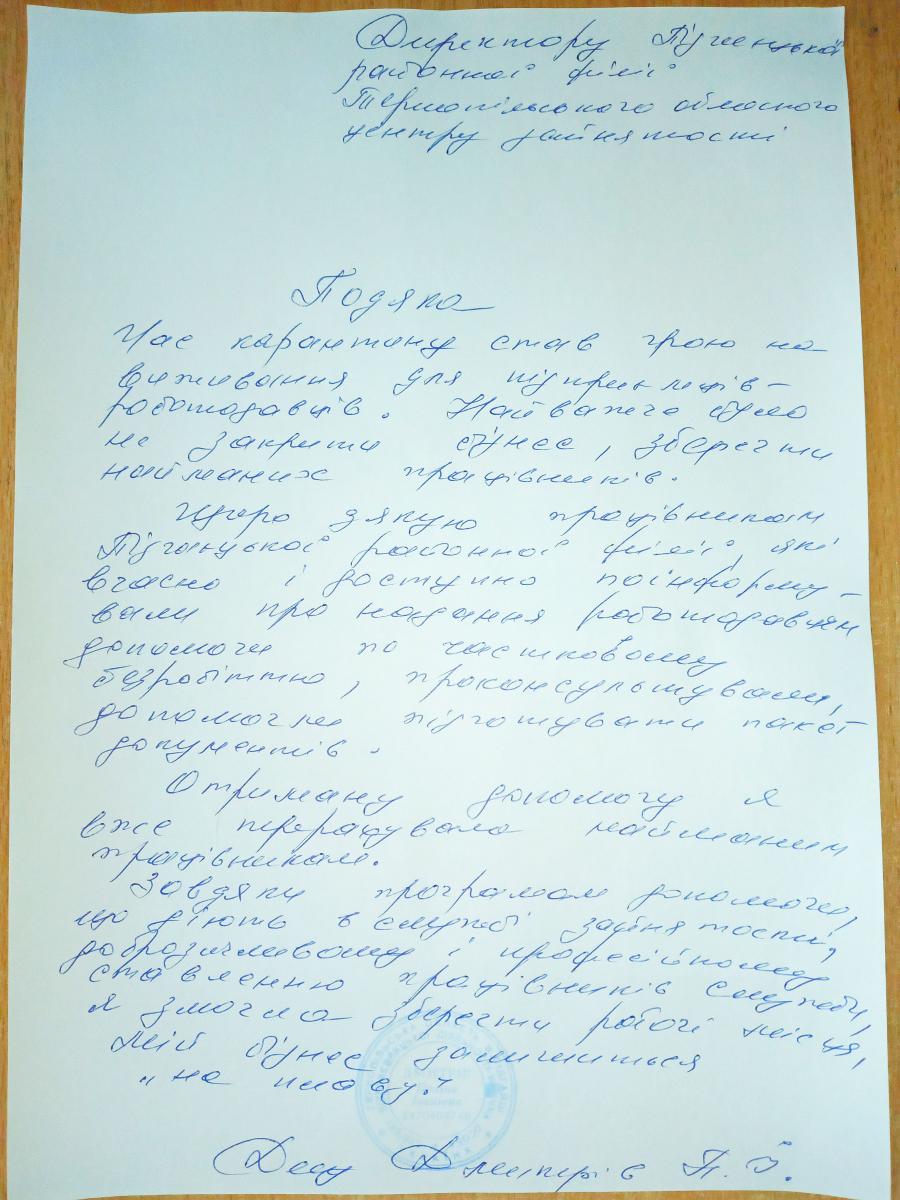 Директору Підгаєцької
районної філії
Тернопільського обласного
центру зайнятості
Подяка
Час карантину став грою на
виживання для підприємців-
роботодавців. Найважче було
не закрити бізнес, зберегти
найманих працівників.
Щиро дякую працівникам
Підгаєцької районної філії, які
вчасно і доступно поінформу-
вали про надання роботодавцям
допомоги по частковому
безробіттю, проконсультували,
допомогли підготувати пакет
документів.
Отриману допомогу я
вже перерахувала найманим
працівникам.
Завдяки програмам допомоги,
що діють в службі зайнятості,
доброзичливому і професійному
ставленню працівників служби,
я змогла зберегти робочі місця,
мій бізнес залишиться
„на плаву".
Дмитрів П. І.